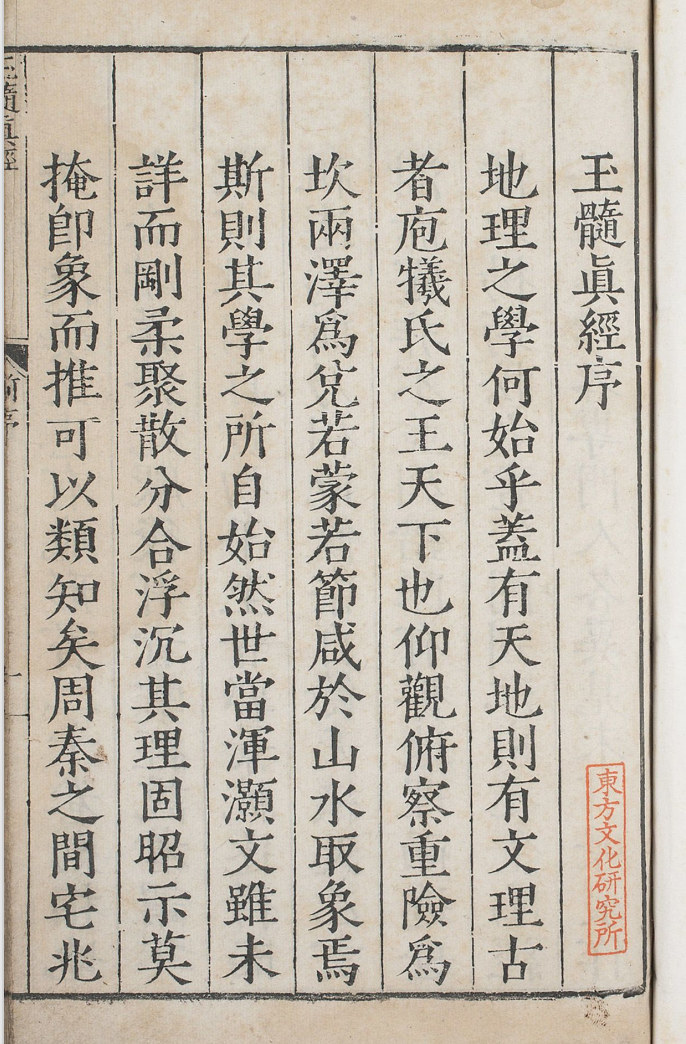 玉髓眞經序
地理之學何始乎蓋有天地則有文理古
者庖犧氏之王天下也仰觀俯察重險爲
坎兩澤爲兌若蒙若節咸於山水取象焉
斯則其學之所自始然世當渾灝文雖未
詳而剛柔聚散分合浮沉其理固昭示莫
掩卽象而推可以類知矣周秦之間宅兆
東方文化研究所
玉髓眞經
前序